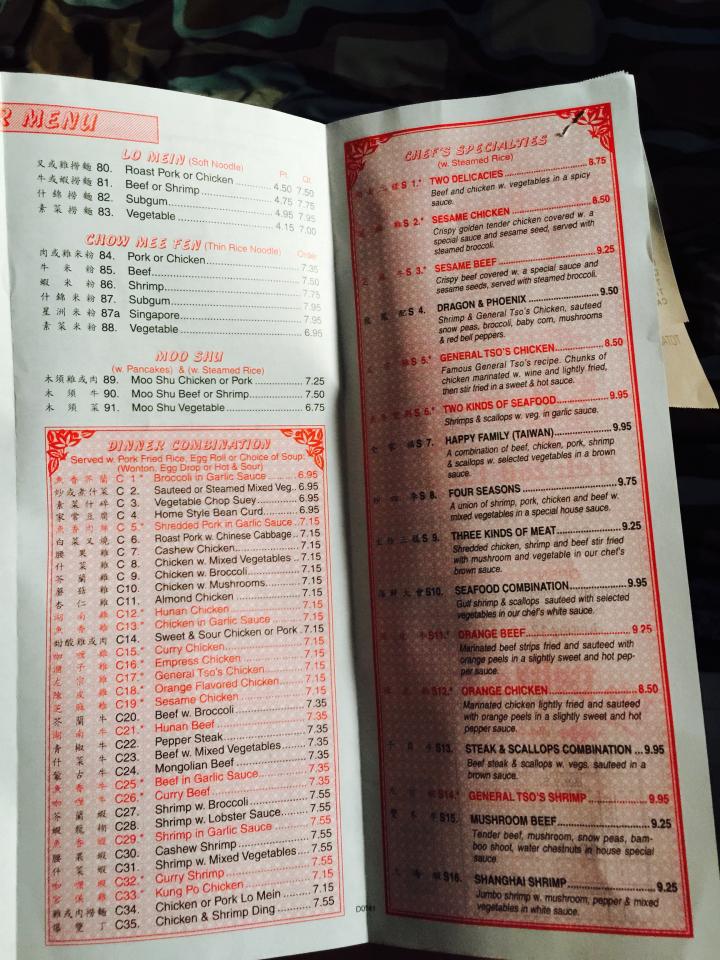 R MENU
LO MEIN (Soft Noodle)
Pt. Qt.
叉或雞撈麵 80. Roast Pork or Chicken 4.50 7.50
牛或蝦撈麵 81. Beef or Shrimp 4.75 7.75
什錦撈麵 82. Subgum 4.95 7.95
素菜撈麵 83. Vegetable 4.15 7.00
CHOW MEE FEN (Thin Rice Noodle)
Order
肉或雞米粉 84. Pork or Chicken 7.35
牛米粉 85. Beef 7.50
蝦米粉 86. Shrimp 7.75
什錦米粉 87. Subgum 7.95
星洲米粉 87a Singapore 7.95
素菜米粉 88. Vegetable 6.95
MOO SHU
(w. Pancakes) & (w. Steamed Rice)
木須雞或肉 89. Moo Shu Chicken or Pork 7.25
木須牛 90. Moo Shu Beef or Shrimp 7.50
木須菜 91. Moo Shu Vegetable 6.75
DINNER COMBINATION
Served w. Pork Fried Rice, Egg Roll or Choice of Soup:
(Wonton, Egg Drop or Hot & Sour)
魚香芥蘭 C 1* Broccoli in Garlic Sauce 6.95
炒或素什菜 C 2. Sauteed or Steamed Mixed Veg. 6.95
素菜什碎 C 3. Vegetable Chop Suey 6.95
家常豆腐 C 4 Home Style Bean Curd 6.95
魚香肉絲 C 5.* Shredded Pork in Garlic Sauce 7.15
白菜叉燒 C 6. Roast Pork w. Chinese Cabbage 7.15
腰果雞 C 7. Cashew Chicken 7.15
什菜雞 C 8. Chicken w. Mixed Vegetables 7.15
芥蘭雞 C 9. Chicken w. Broccoli 7.15
蘑菇雞 C10. Chicken w. Mushrooms 7.15
杏仁雞 C11. Almond Chicken 7.15
湖南雞 C12.* Hunan Chicken 7.15
魚香雞 C13.* Chicken in Garlic Sauce 7.15
甜酸雞或肉 C14. Sweet & Sour Chicken or Pork 7.15
咖喱雞 C15.* Curry Chicken 7.15
C16.* Empress Chicken 7.15
左宗雞 C17.* General Tso's Chicken 7.15
陳皮雞 C18.* Orange Flavored Chicken 7.15
芝麻雞 C19* Sesame Chicken 7.15
芥蘭牛 C20. Beef w. Broccoli 7.35
湖南牛 C21.* Hunan Beef 7.35
青椒牛 C22. Pepper Steak 7.35
什菜牛 C23. Beef w. Mixed Vegetables 7.35
蒙古牛 C24. Mongolian Beef 7.35
魚香牛 C25* Beef in Garlic Sauce 7.35
咖喱牛 C26.* Curry Beef 7.35
芥蘭蝦 C27. Shrimp w. Broccoli 7.55
蝦龍糊 C28. Shrimp w. Lobster Sauce 7.55
魚香蝦 C29.* Shrimp in Garlic Sauce 7.55
腰果蝦 C30. Cashew Shrimp 7.55
什菜蝦 C31. Shrimp w. Mixed Vegetables 7.55
咖喱蝦 C32.* Curry Shrimp 7.55
宮保雞 C33.* Kung Po Chicken 7.15
雞或肉撈麵 C34. Chicken or Pork Lo Mein 7.15
爆雙丁 C35. Chicken & Shrimp Ding 7.55
CHEF'S SPECIALTIES
(w. Steamed Rice)
S 1.* TWO DELICACIES 8.75
Beef and chicken w. vegetables in a spicy
sauce.
S 2.* SESAME CHICKEN 8.50
Crispy golden tender chicken covered w. a
special sauce and sesame seed, served with
steamed broccoli.
S 3.* SESAME BEEF 9.25
Crispy beef covered w. a special sauce and
sesame seeds, served with steamed broccoli.
S 4. DRAGON & PHOENIX 9.50
Shrimp & General Tso's Chicken, sauteed
snow peas, broccoli, baby corn, mushrooms
& red bell peppers.
S 5.* GENERAL TSO'S CHICKEN 8.50
Famous General Tso's recipe. Chunks of
chicken marinated w. wine and lightly fried,
then stir fried in a sweet & hot sauce.
S 6.* TWO KINDS OF SEAFOOD 9.95
Shrimps & scallops w. veg. in garlic sauce.
S 7. HAPPY FAMILY (TAIWAN) 9.95
A combination of beef, chicken, pork, shrimp
& scallops w. selected vegetables in a brown
sauce.
S 8. FOUR SEASONS 9.75
A union of shrimp, pork, chicken and beef w.
mixed vegetables in a special house sauce.
S 9. THREE KINDS OF MEAT 9.25
Shredded chicken, shrimp and beef stir fried
with mushroom and vegetable in our chef's
brown sauce.
S10. SEAFOOD COMBINATION 9.95
Gulf shrimp & scallops sauteed with selected
vegetables in our chef's white sauce.
S11.* ORANGE BEEF 9.25
Marinated beef strips fried and sauteed with
orange peels in a slightly sweet and hot pep-
per sauce.
S12.* ORANGE CHICKEN 8.50
Marinated chicken lightly fried and sauteed
with orange peels in a slightly sweet and hot
pepper sauce.
S13. STEAK & SCALLOPS COMBINATION 9.95
Beef steak & scallops w. vegs. sauteed in a
brown sauce.
S14.* GENERAL TSO'S SHRIMP 9.95
S15. MUSHROOM BEEF 9.25
Tender beef, mushroom, snow peas, bam-
boo shoot, water chestnuts in house special
sauce.
S16. SHANGHAI SHRIMP 9.25
Jumbo shrimp w. mushroom, pepper & mixed
vegetables in white sauce.